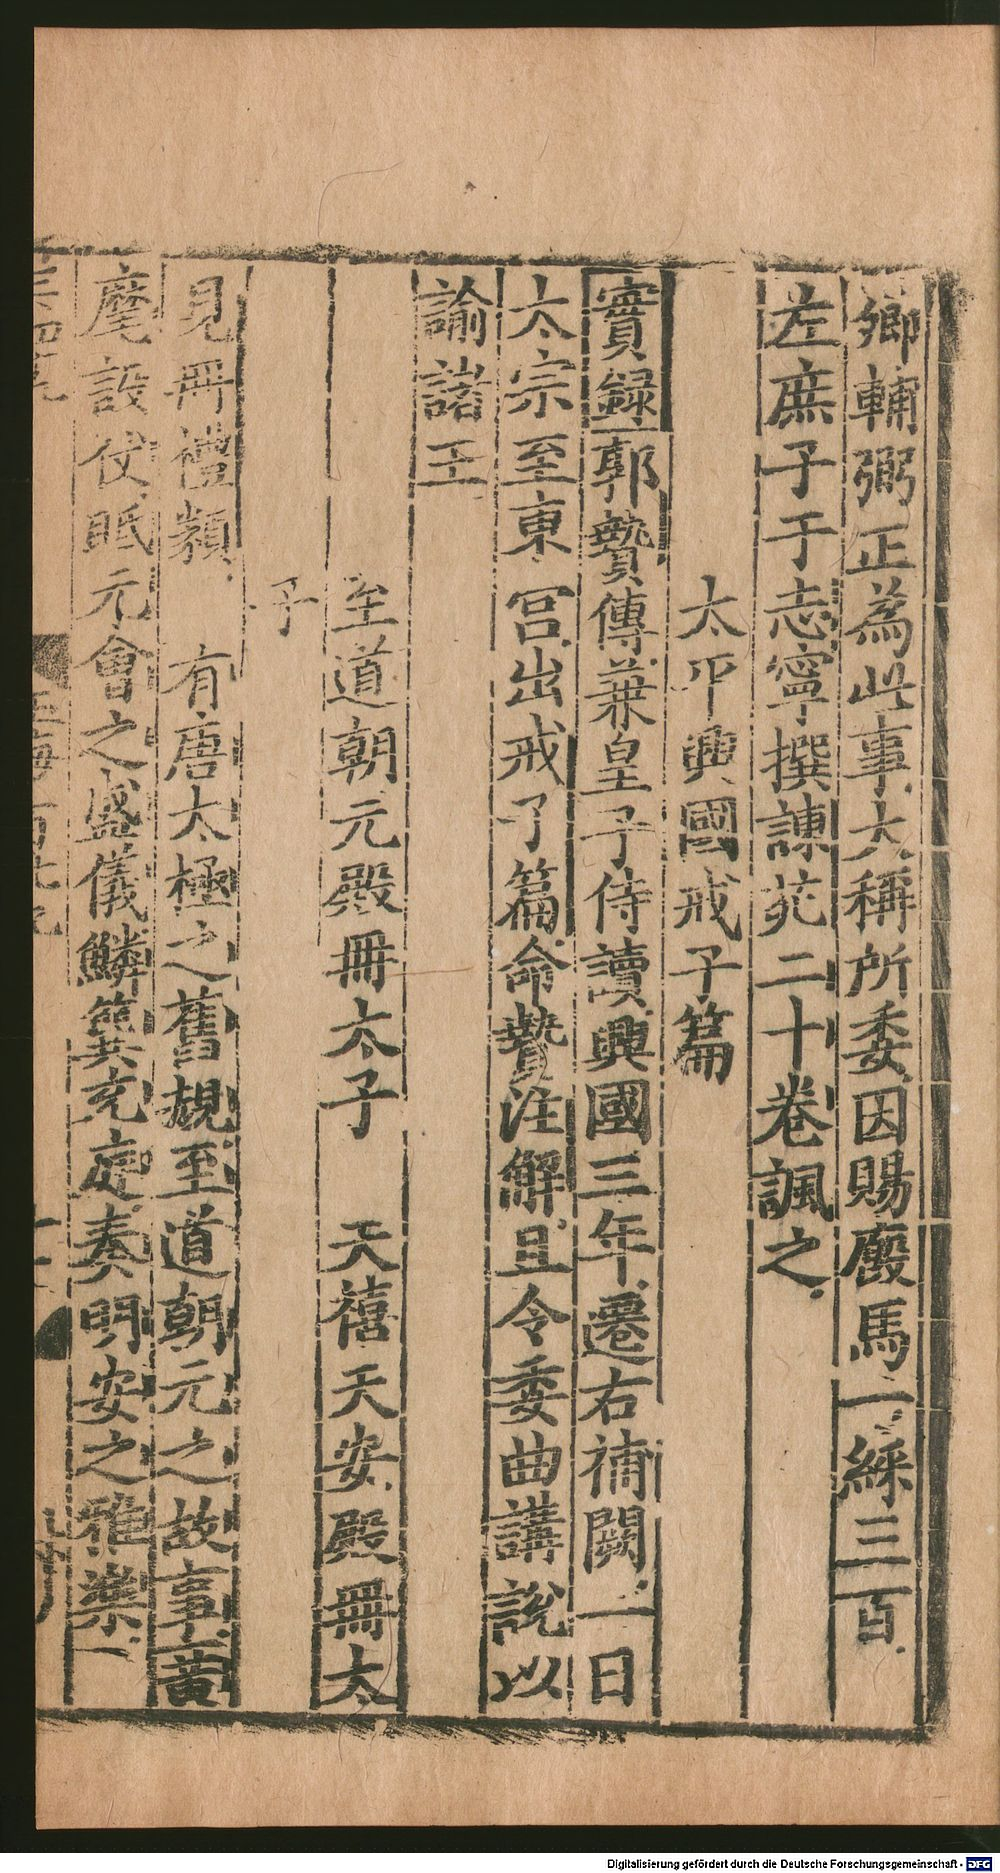 卿輔弼正為此事大稱所委因賜廄馬一綵三百
左庶子于志寧撰諫苑二十卷諷之
太平興國戒子篇
實録郭贄傳兼皇子侍讀興國三年遷右補闕一日
太宗至東宮出戒子篇命贄注解且令委曲講說以
諭諸王
至道朝元殿冊太子 天禧天安殿冊太
子
見冊禮類 有唐太極之舊規至道朝元之故事黃
麾設仗眡元會之盛儀鱗筍充庭奏明安之雅樂
玉海百廿九
Digitalisierung gefördert durch die Deutsche Forschungsgemeinschaft - DFG